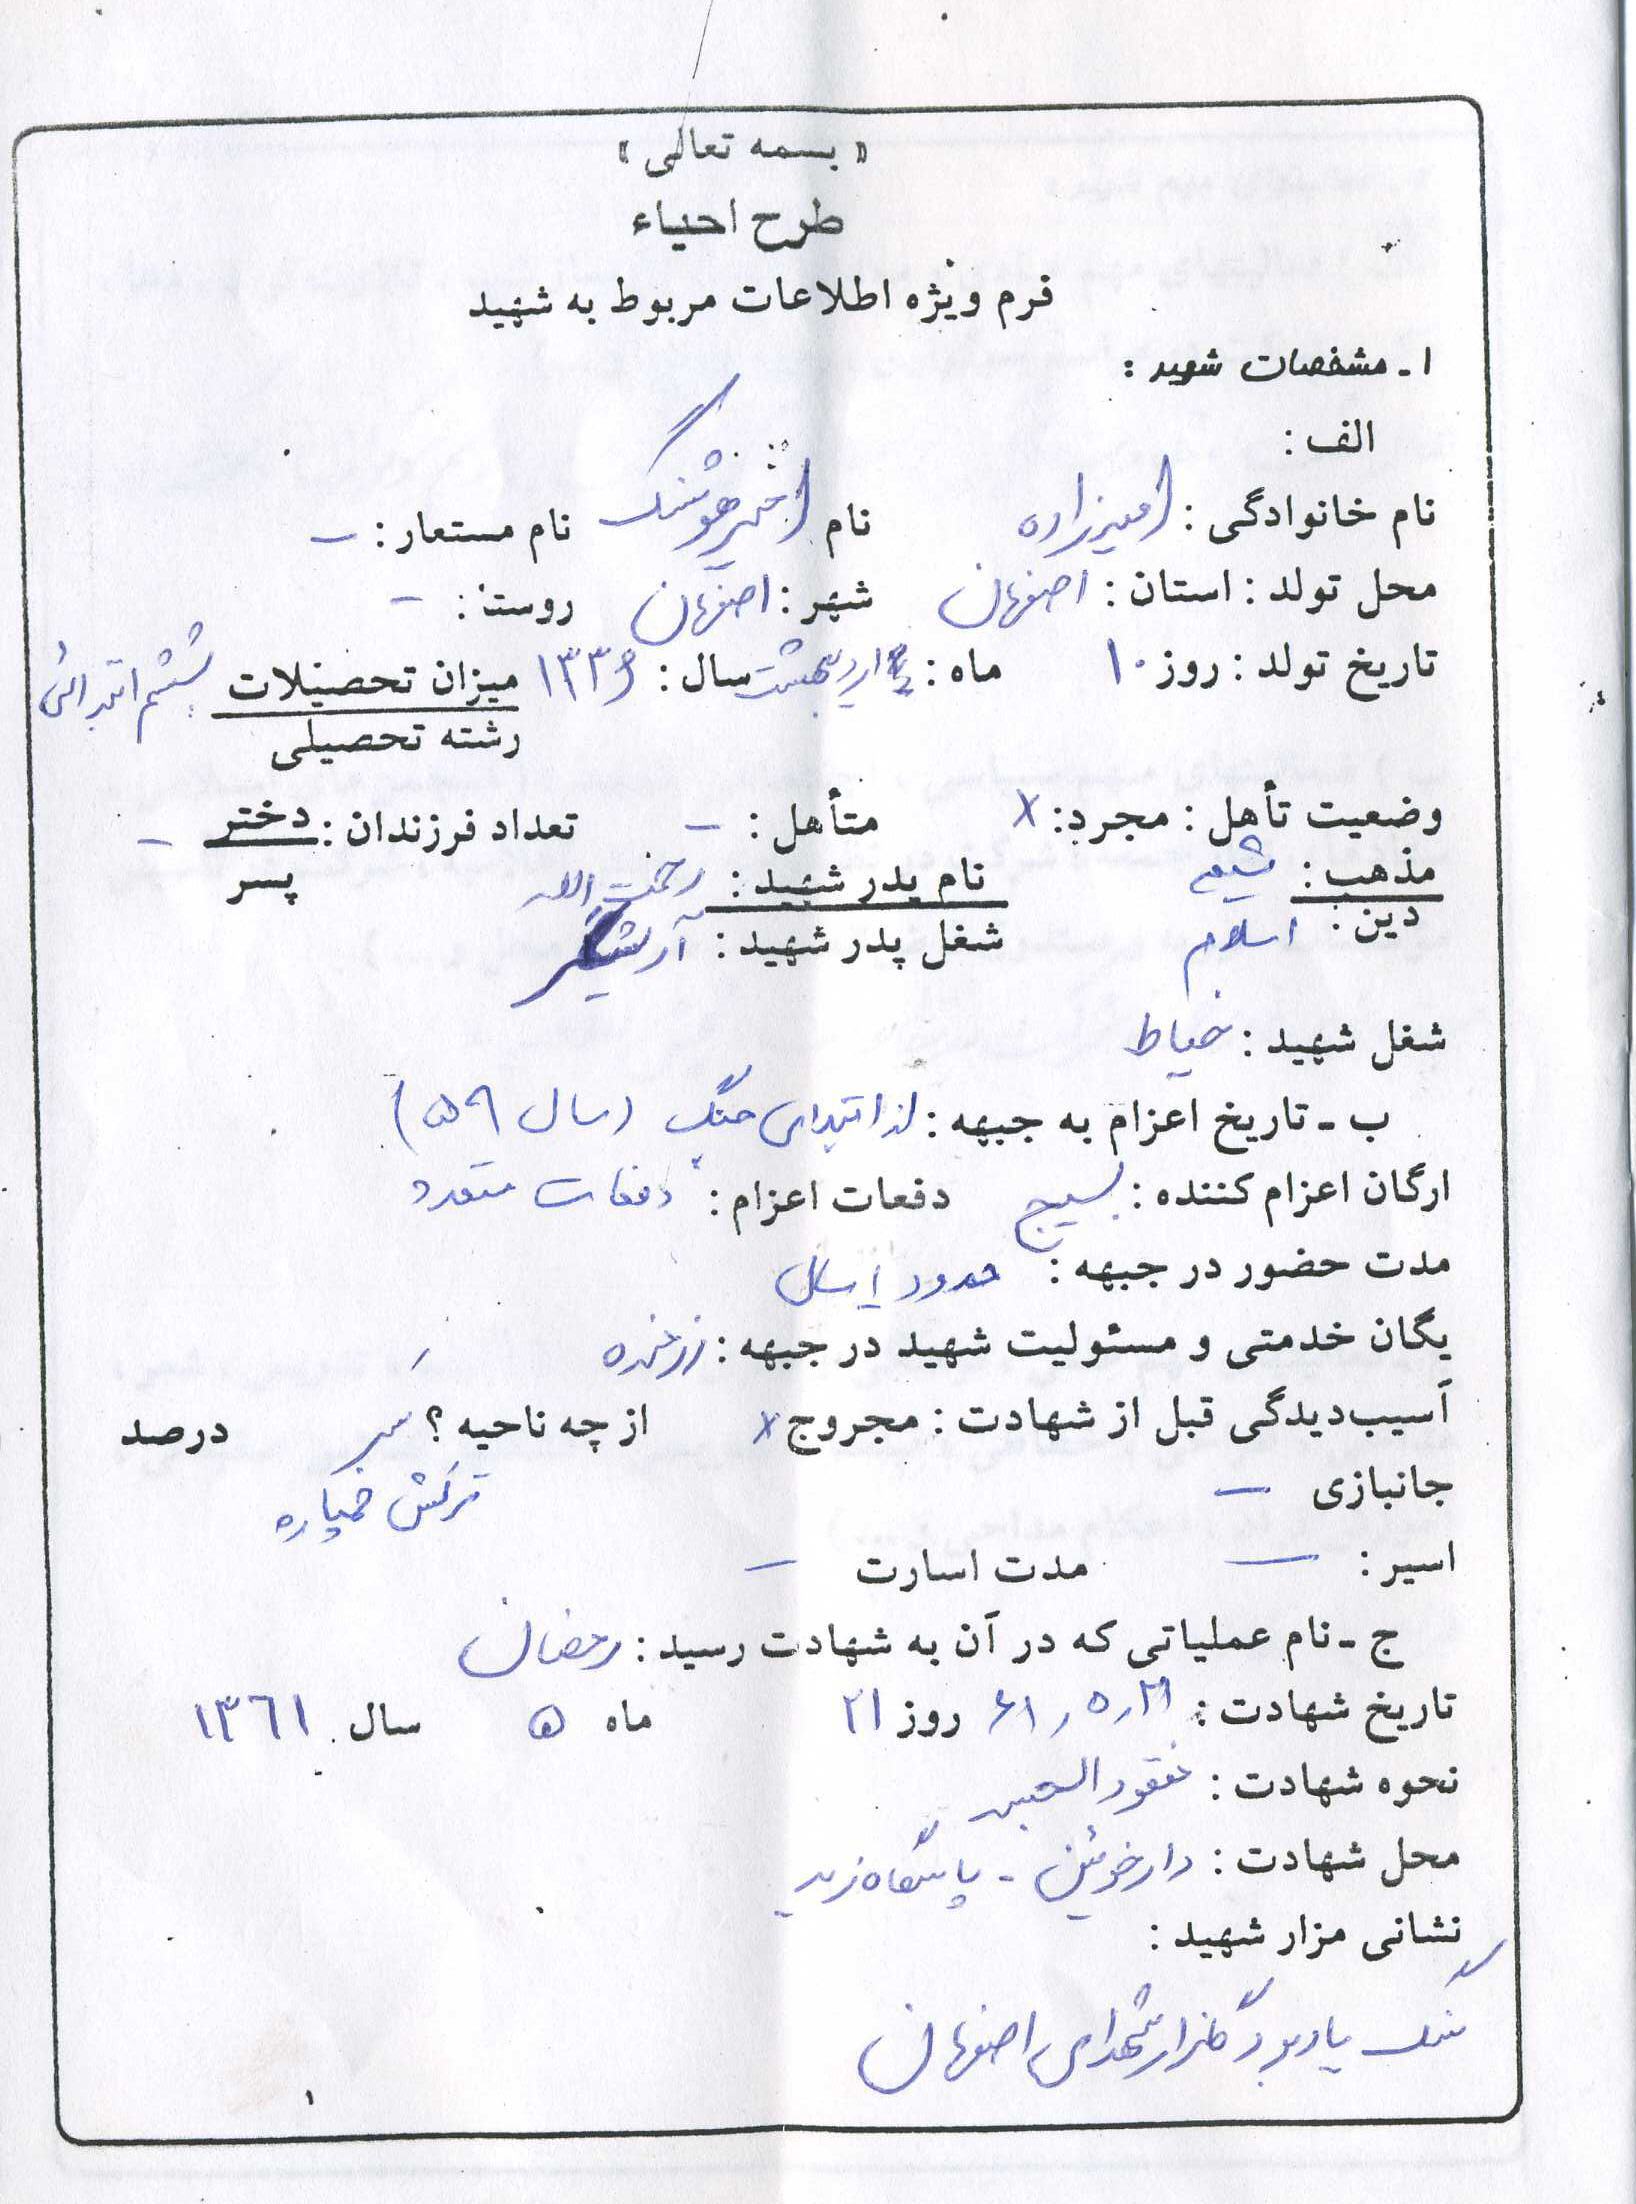 « بسمه تعالی »
طرح احیاء
فرم ویژه اطلاعات مربوط به شهید
۱ ـ مشخصات شهید :
الف :
نام خانوادگی : امیرزاده نام هوشنگ نام مستعار : –
محل تولد : استان : اصفهان شهر : اصفهان روستا : –
تاریخ تولد : روز ۱۰ ماه : اردیبهشت سال : ۱۳۳۶ میزان تحصیلات ششم ابتدائی
رشته تحصیلی
وضعیت تأهل : مجرد : x متأهل : – تعداد فرزندان : دختر –
پسر
مذهب : شیعه نام پدر شهید : رحمت الله
دین : اسلام شغل پدر شهید : آرایشگر
شغل شهید : خیاط
ب ـ تاریخ اعزام به جبهه : از ابتدای جنگ (سال ۵۹)
ارگان اعزام کننده : بسیج دفعات اعزام : دفعات متعدد
مدت حضور در جبهه : حدود ۱ سال
یگان خدمتی و مسئولیت شهید در جبهه : رزمنده
آسیب‌دیدگی قبل از شهادت : مجروح x از چه ناحیه ؟ سر درصد
ترکش خمپاره
جانبازی –
اسیر : – مدت اسارت –
ج ـ نام عملیاتی که در آن به شهادت رسید : رمضان
تاریخ شهادت : ۶۱٫۵٫۲۱ روز ۲۱ ماه ۵ سال ۱۳۶۱
نحوه شهادت : مفقود الجسد
محل شهادت : دارخوئین - پاسگاه زید
نشانی مزار شهید :
سنگ یادبود گلزار شهدای اصفهان
۱